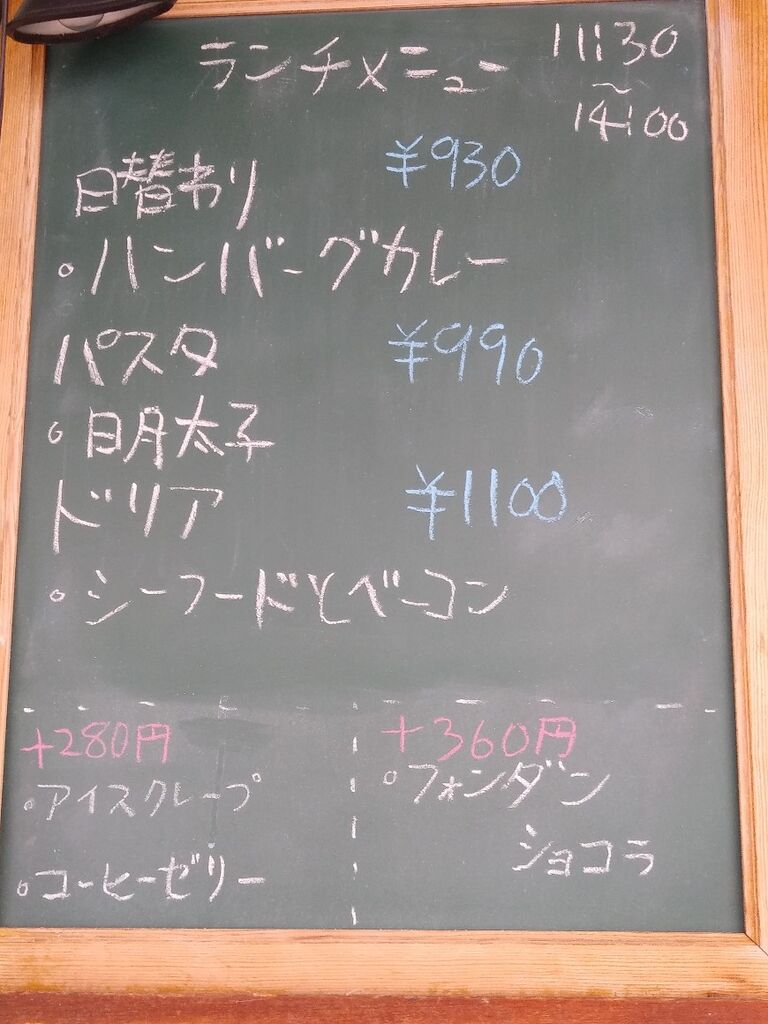 ランチメニュー 11:30
〜
14:00
日替わり ¥930
。ハンバーグカレー
パスタ ¥990
。明太子
ドリア ¥1100
。シーフードとベーコン
+280円
。アイスクレープ
。コーヒーゼリー
+360円
。フォンダン
ショコラ